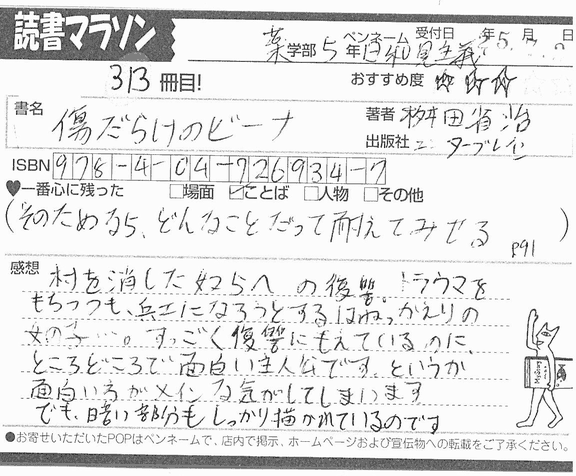 読書マラソン
薬学部 5年 ペンネーム 日和見主義 受付日 年5月 日
313冊目! おすすめ度 ☆☆☆
書名 傷だらけのビーナ 著者 桝田省治
出版社 エンターブレイン
ISBN 978-4-04-726934-7
♥一番心に残った □場面 ☑ことば □人物 □その他
(そのためなら、どんなことだって耐えてみせる P91)
感想 村を消した奴らへの復讐。トラウマを
もちつつも、兵士になろうとするはねっかえりの
女の子…。すっごく復讐にもえているのに、
ところどころで面白い主人公です。というか
面白い方がメインな気がしてしまいます
でも、暗い部分もしっかり描かれているのです
●お寄せいただいたPOPはペンネームで、店内で掲示、ホームページおよび宣伝物への転載をご了承ください。